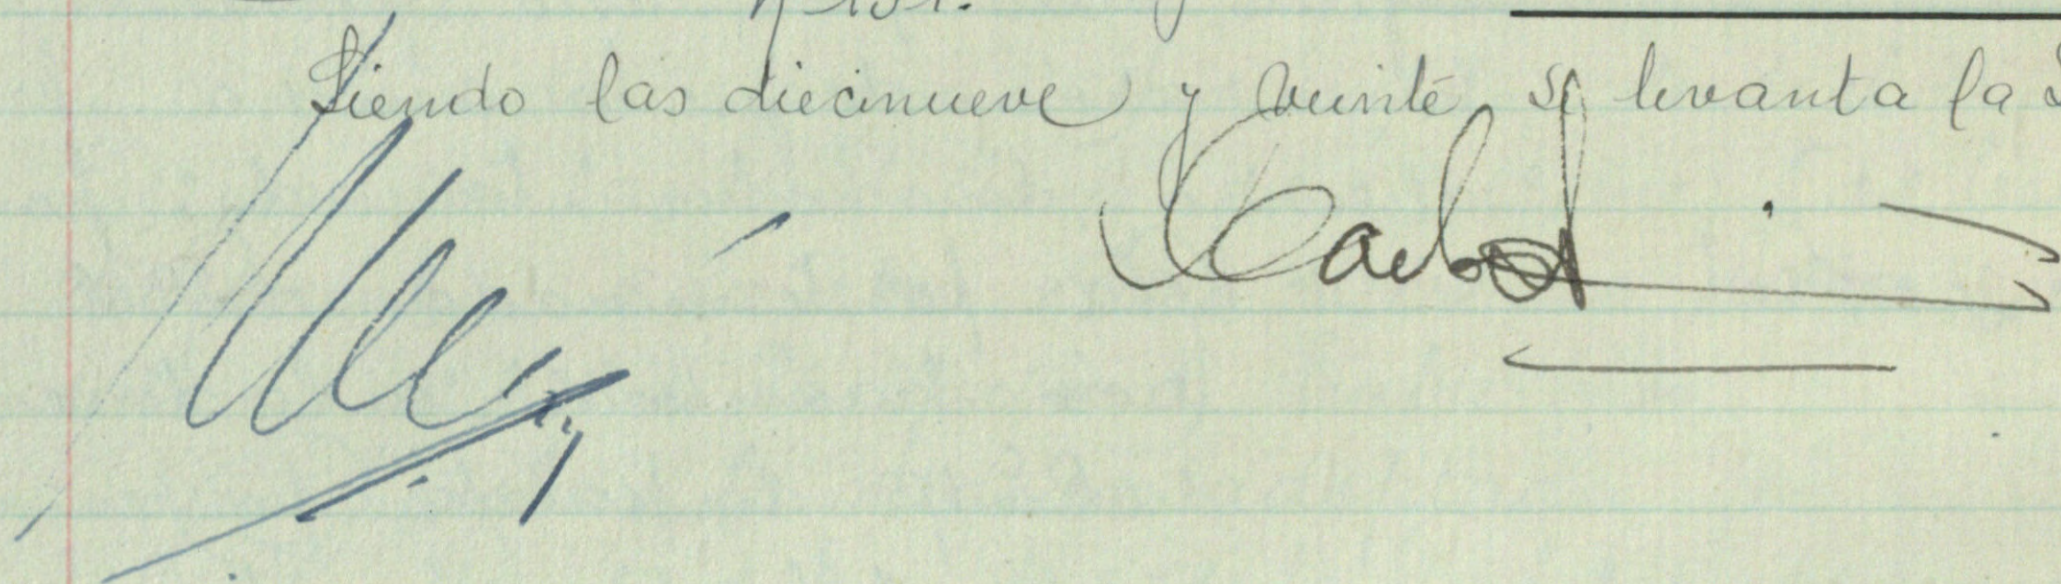 Siendo las diecinueve y veinte se levanta la